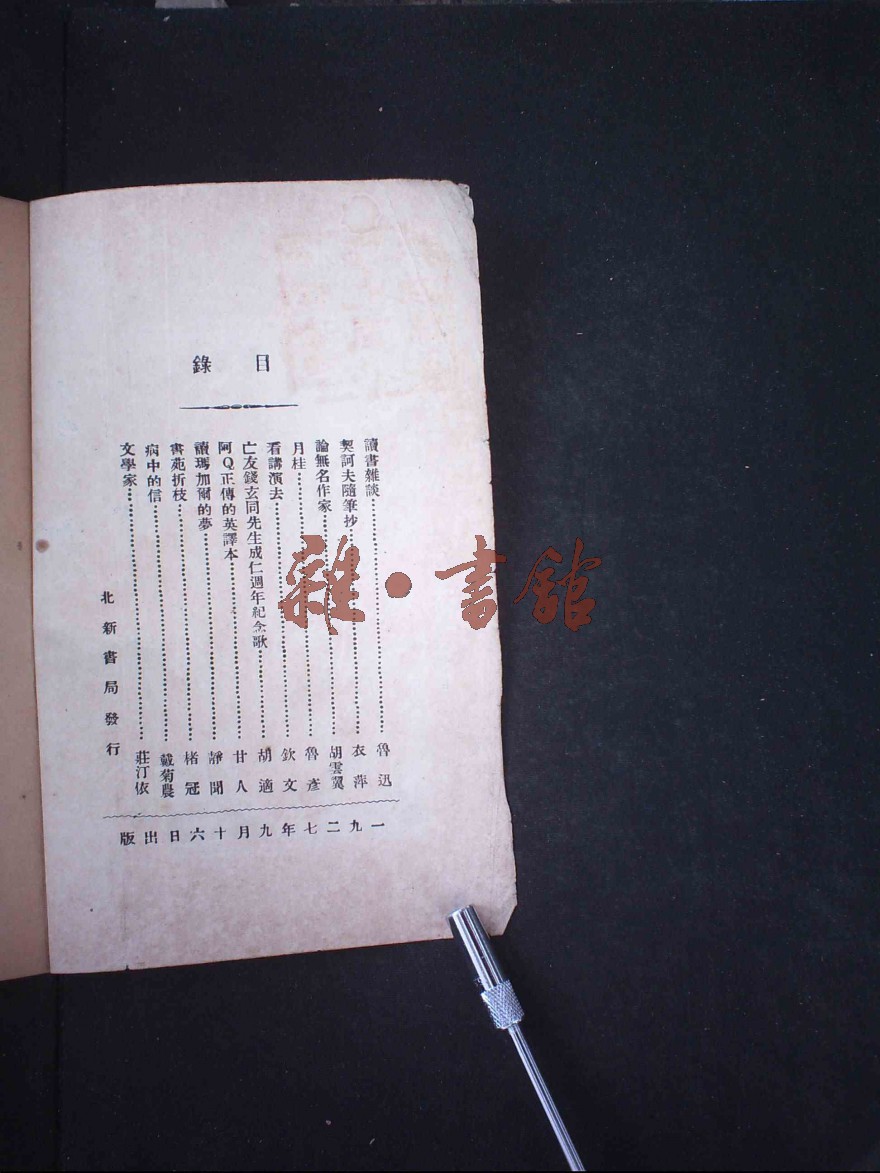 目錄
讀書雜談 魯迅
契訶夫隨筆抄 衣萍
論無名作家 胡雲翼
月桂 魯彥
看講演去 欽文
亡友錢玄同先生成仁週年紀念歌 胡適
阿Q正傳的英譯本 甘人
讀瑪加爾的夢 靜聞
書苑折枝 楮冠
病中的信 戴菊農
文學家 莊汀依
北新書局發行
一九二七年九月十六日出版
雜·書館